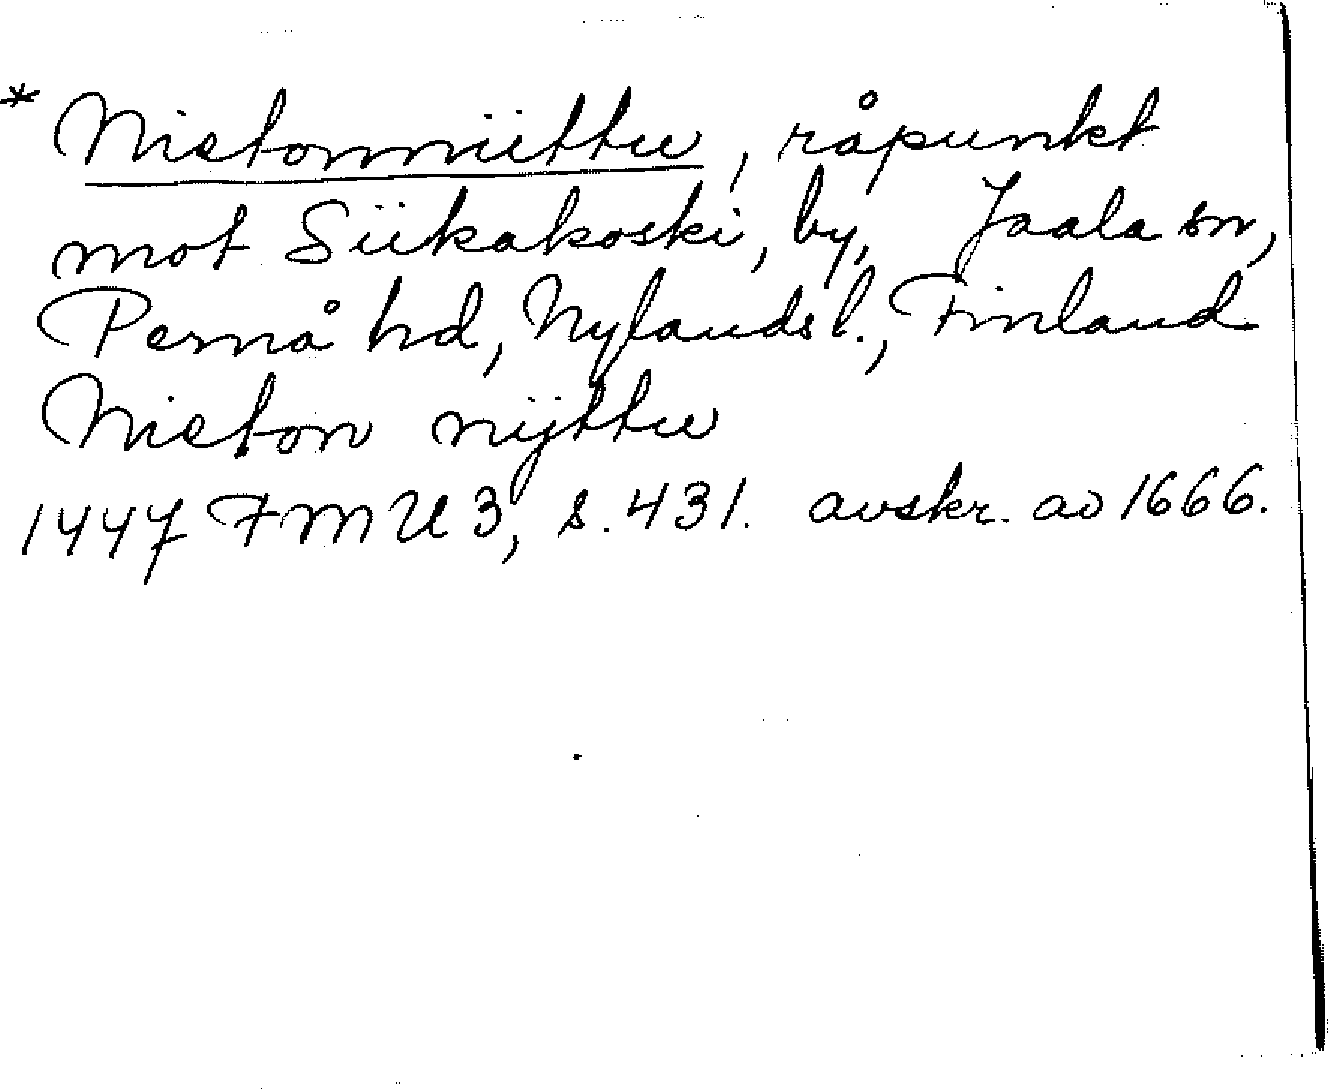 * Nistonniittu, råpunkt
mot Siikakoski, by, Jaala sn,
Pernå hd, Nylands l., Finland
Niston nijttu
1447 FMU 3, s. 431. avskr. av 1666.